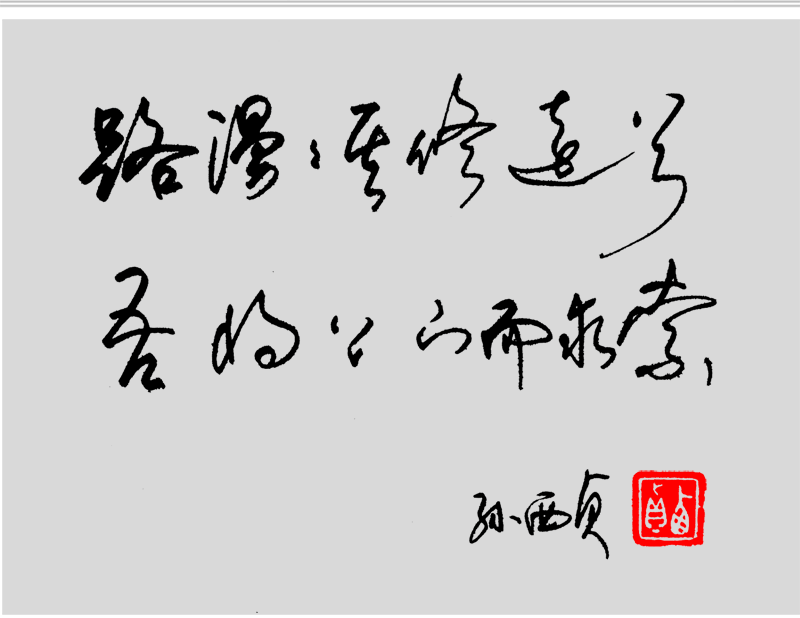 路漫漫其修遠兮
吾将上下而求索
孙西贞